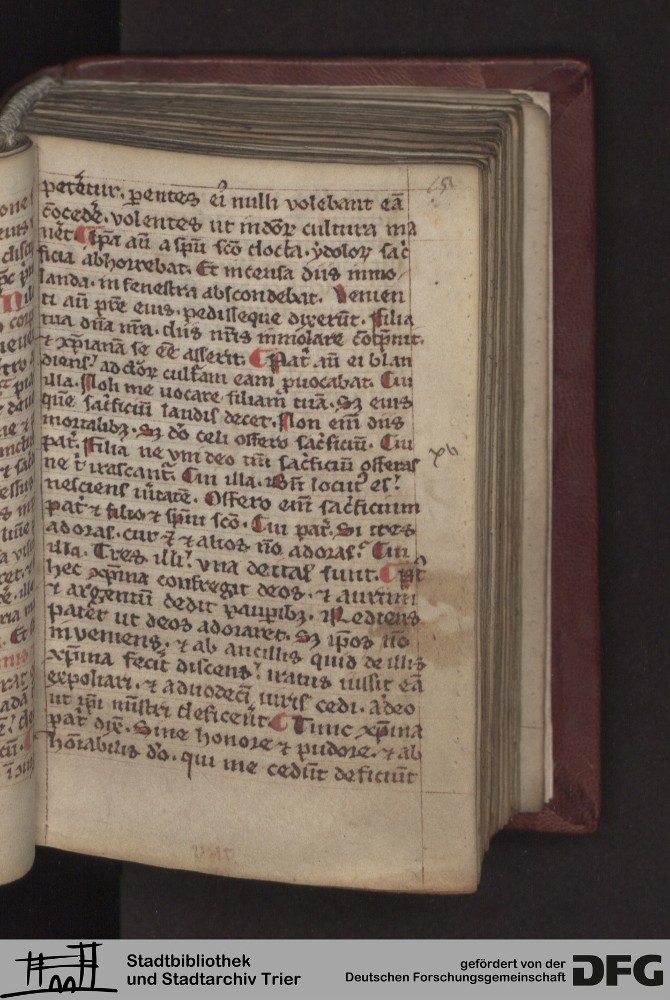 petēt̄ur. pentes eī nulli volebant eā
c̄ocedē. volentes ut in dōr̄ cultura ma
nēt. ip̄a aū a sp̄u sc̄o docta. ydolor̄ sac̄
ficia abhorrebat. Et incensa diis inmo
landa. in fenestra abscondebat. Venien
ti aū pr̄e eius. pedisseque dixerūt. Filia
tua dn̄a nr̄a. diis nr̄is inmolare cōtp̄nit.
⁊ xp̄ianā se eē asserit. Pat̄ aū ei blan
diens. ad dōr̄ cult̄am eam p̄uocabat. Cui
illa. Noli me uocare filiam tuā. Sꝫ eius
quē sac̄ficiū laudis decet. Non eim̄ diis
mortalibꝫ. Sꝫ dō celi offero sac̄ficiū. Cui
pat̄. Filia ne vni deo tm̄ sac̄ficiū offeras
ne t̄ irascant̄. Cui illa. Bn̄ locut̄ es.
nesciens ūitatē. Offero eim̄ sac̄ficium
pat̄ ⁊ filio ⁊ sp̄ui sc̄o. Cui pat̄. Si tres
adoras. cur ⁊ alios nō adoras. Cui
illa. Tres illi. vna deitas sunt. Pt̄
hec xp̄ina confregit deos. ⁊ aurum
⁊ argentū dedit paup̄ibꝫ. Rediens
pater ut deos adoraret. Sꝫ ip̄os nō
inveniens. ⁊ ab ancillis quid de illis
xp̄ina fecit discens. iratus iussit eā
expoliari. ⁊ a duodeci uiris cedi. adeo
ut ip̄i mīstri deficeūt. Tunc xp̄ina
pat̄ dix̄. Sine honore ⁊ pudore. ⁊ ab
hōrabilis dō. qui me cedūt deficiūt
Stadtbibliothek
und Stadtarchiv Trier
gefördert von der
Deutschen Forschungsgemeinschaft
DFG